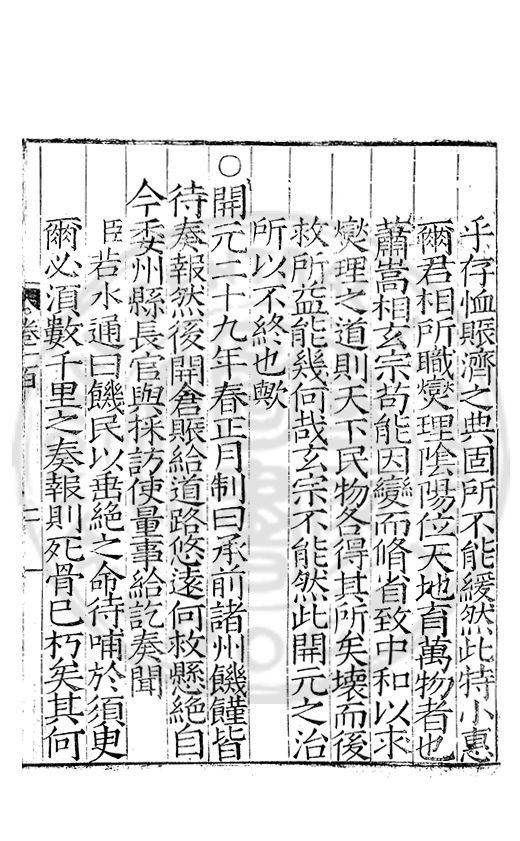 乎存恤賑濟之典固所不能緩然此特小惠
爾君相所職爕理陰陽位天地育萬物者也
蕭嵩相玄宗苟能因變而脩省致中和以求
爕理之道則天下民物各得其所矣壞而後
救所益能幾何哉玄宗不能然此開元之治
所以不終也歟
○開元二十九年春正月制曰承前諸州饑饉皆
待奏報然後開倉賑給道路悠遠何救懸絶自
今委州縣長官與採訪使量事給訖奏聞
臣若水通曰饑民以垂絶之命待哺於須臾
爾必須數千里之奏報則死骨已朽矣其何
卷一百